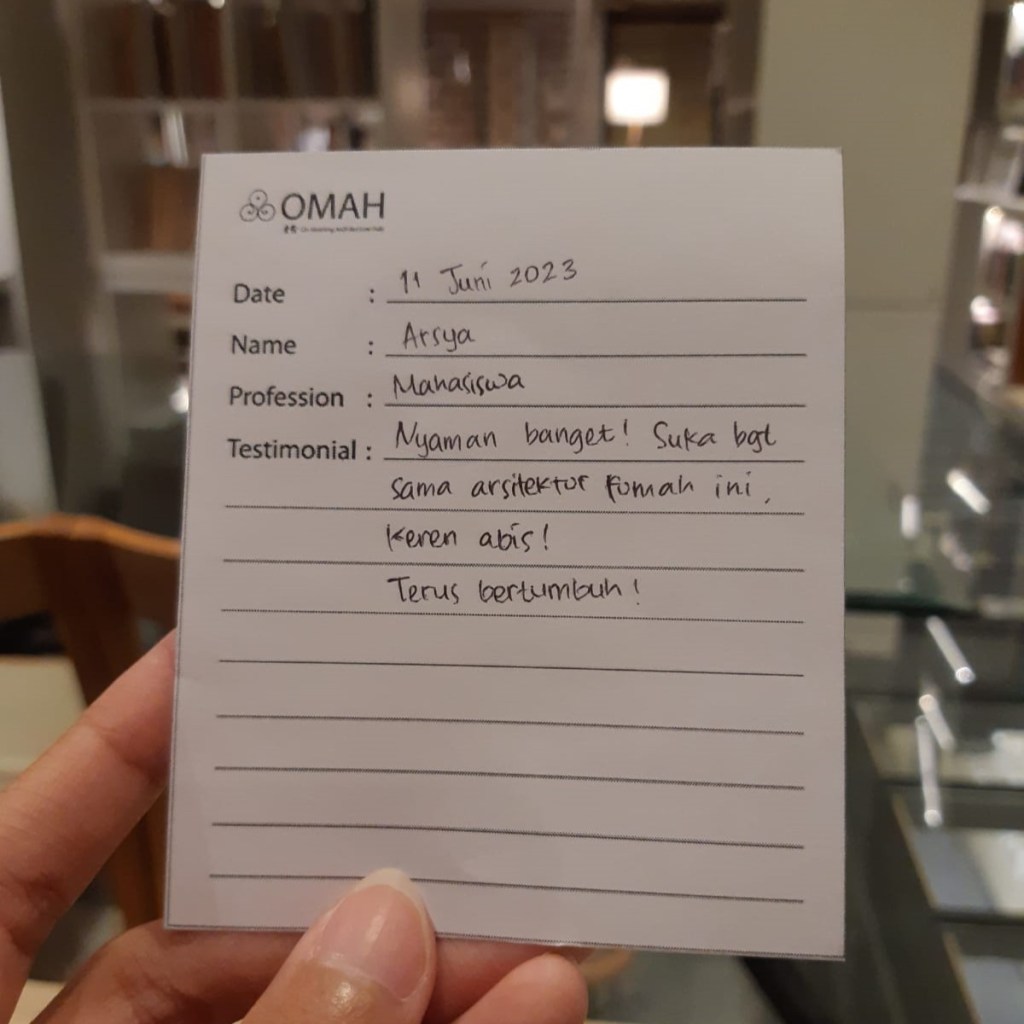 OMAH
Date : 11 Juni 2023
Name : Arsya
Profession : Mahasiswa
Testimonial : Nyaman banget! Suka bgt
sama arsitektur rumah ini,
keren abis!
Terus bertumbuh!